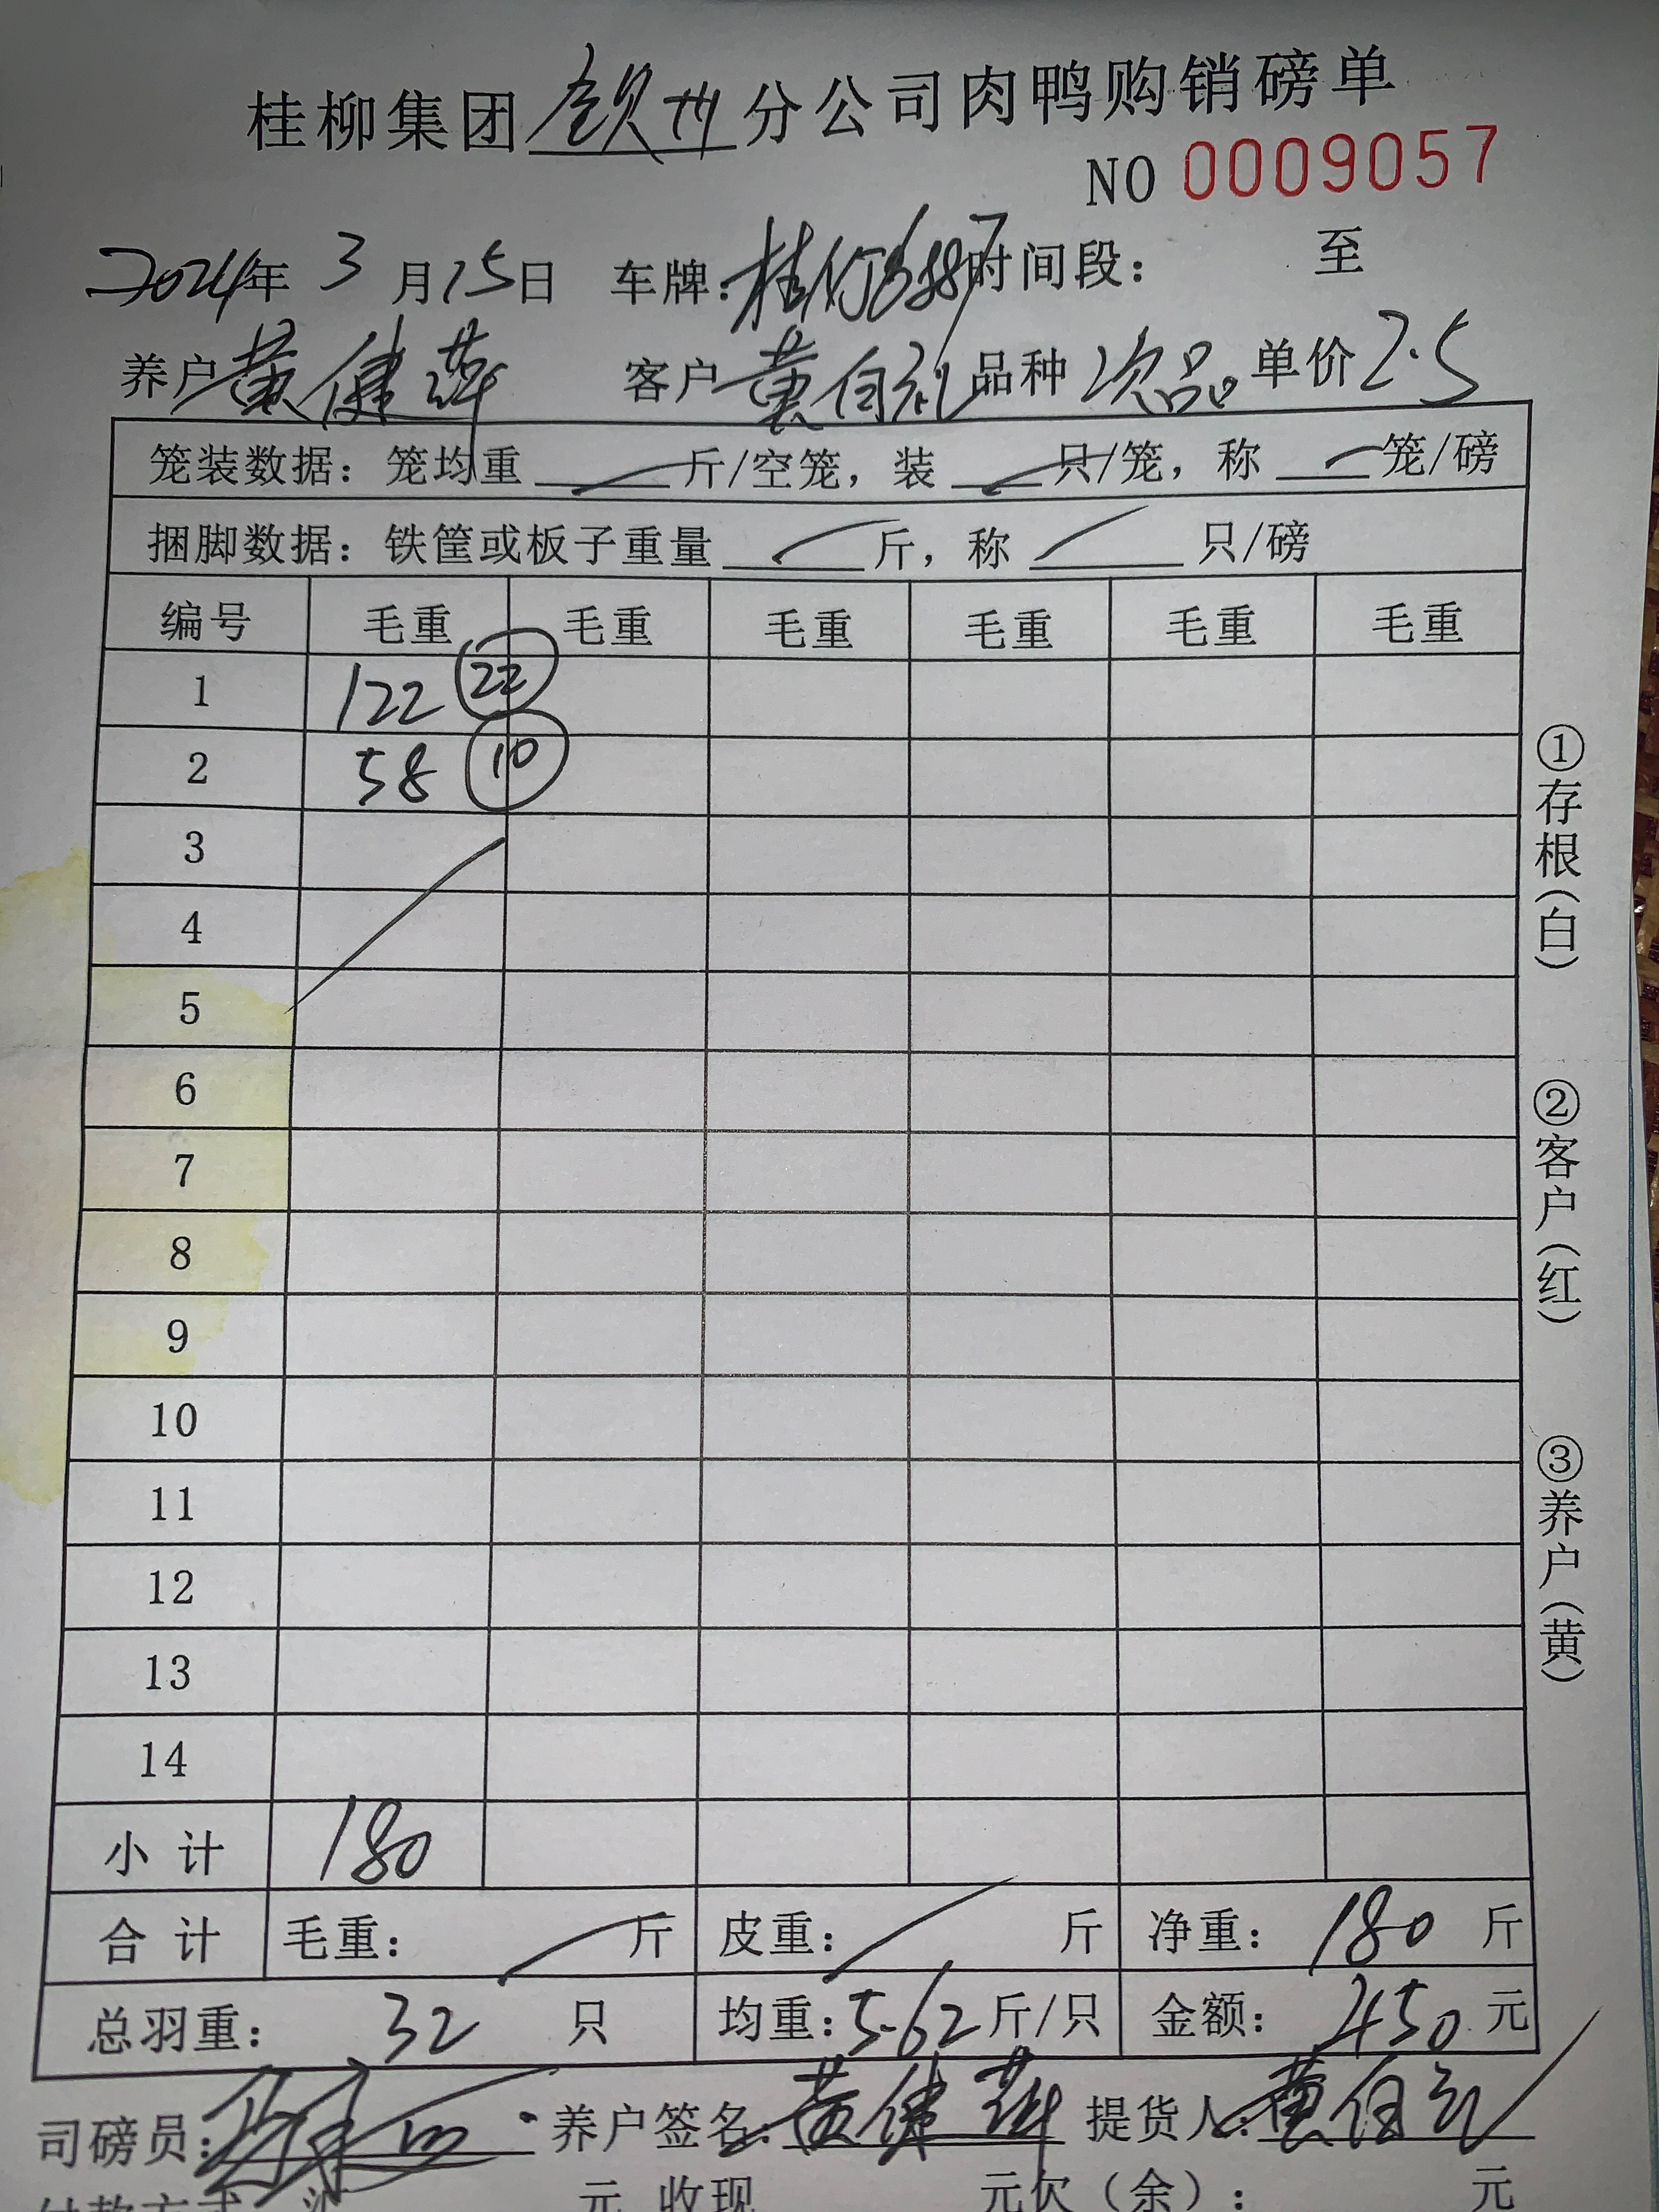 桂柳集团钦州分公司肉鸭购销磅单
NO 0009057
2024年 3 月 15日 车牌： 时间段： 至
养户 黄健萍 客户 黄自礼 品种 次品 单价 2.5
笼装数据：笼均重 斤/空笼，装 只/笼，称 笼/磅
捆脚数据：铁筐或板子重量 斤，称 只/磅
编号 毛重 毛重 毛重 毛重 毛重 毛重
1 122 22
2 58 10
3
4
5
6
7
8
9
10
11
12
13
14
小计 180
合计 毛重： 斤 皮重： 斤 净重： 180 斤
总羽重： 32 只 均重：5.62斤/只 金额： 450 元
司磅员： 养户签名：黄健萍 提货人：黄自礼
付款方式 元 收现 元欠（余）： 元
①存根（白）
②客户（红）
③养户（黄）